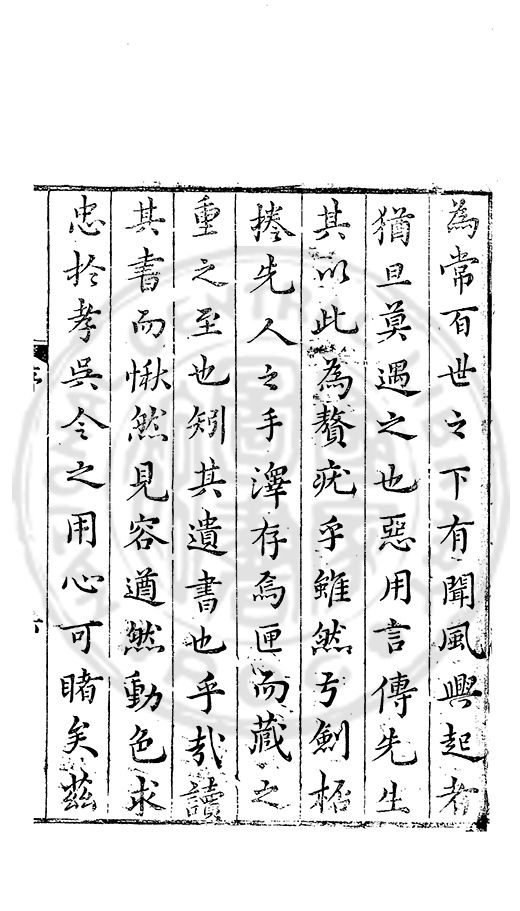 為常百世之下有聞風興起者
猶旦莫遇之也惡用言傳先生
其以此為贅疣乎雖然弓劍桮
棬先人之手澤存焉匣而藏之
重之至也矧其遺書也乎哉讀
其書而愀然見容遒然動色求
忠於孝吳令之用心可睹矣茲